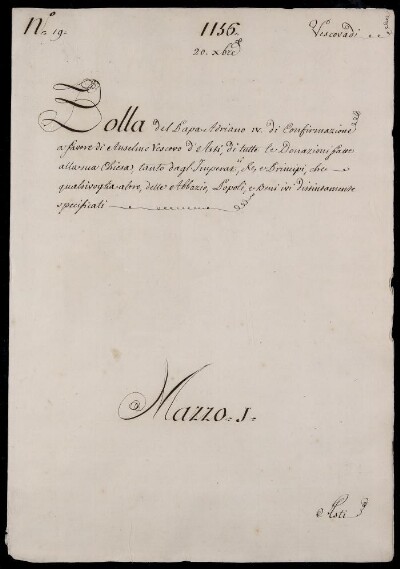 N.º 19. 1156. Vescovadi
20. xbre
Bolla del Papa Adriano IV. di Confirmazione
a favore di Anselmo Vescovo d'Asti, di tutte le Donazioni fatte
alla sua Chiesa, tanto dagl'Imperat.ri, Re, e Principi, che
qualsivoglia altro, delle Abbazie, Popoli, e Beni ivi distintamente
specificati
Mazzo. 1.
Asti